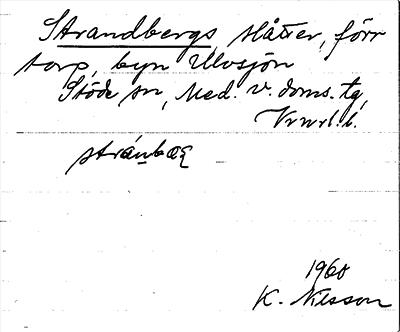 Strandbergs slåtter, förr
torp, byn Ulvsjön
Stöde sn, Med. v. doms. tg,
Vrnrl. l.
stránbæ
1960
K. Nilsson